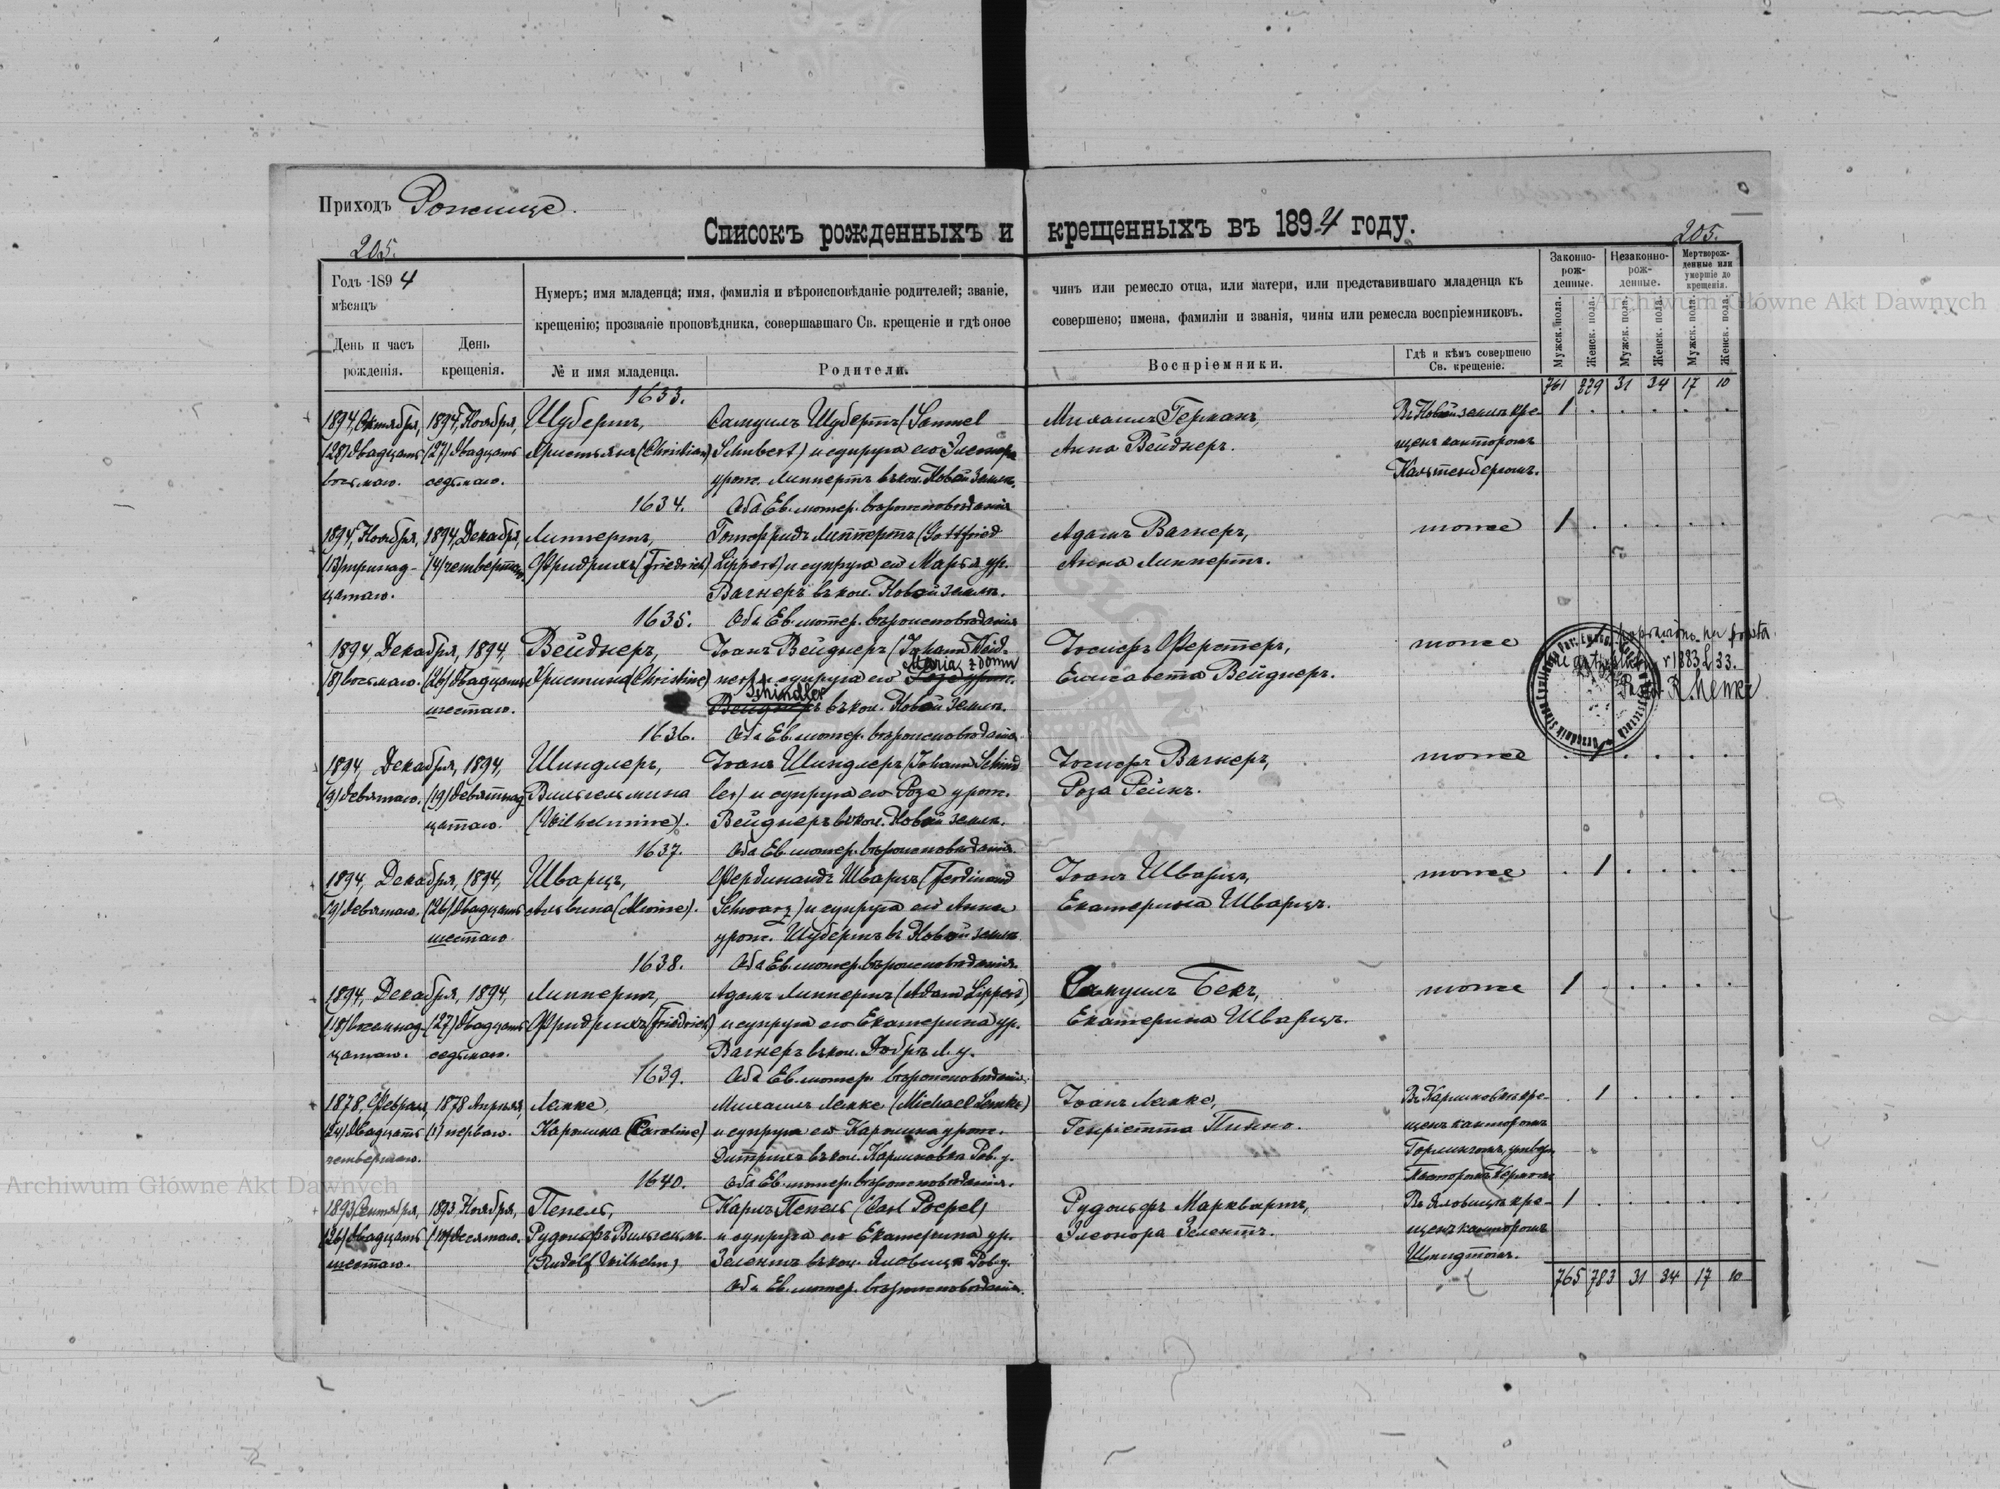 Приходъ Рожище.
Списокъ рожденныхъ и крещенныхъ въ 1894 году.
205.
205.
Годъ 1894
мѣсяцъ
День и часъ рожденія.
День крещенія.
Нумеръ; имя младенца; имя, фамилія и вѣроисповѣданіе родителей; званіе, чинъ или ремесло отца, или матери, или представившаго младенца къ
крещенію; прозваніе проповѣдника, совершавшаго Св. крещеніе и гдѣ оное совершено; имена, фамиліи и званія, чины или ремесла воспріемниковъ.
№ и имя младенца.
Родители.
Воспріемники.
Гдѣ и кѣмъ совершено
Св. крещеніе.
Законно-
рож-
денные.
Незаконно-
рож-
денные.
Мертворож-
денные или
умершіе до
крещенія.
Мужск. пола.
Женск. пола.
Мужск. пола.
Женск. пола.
Мужск. пола.
Женск. пола.
761 779 31 34 17 10
1633.
1894, Октября, 1894, Ноября, Шубертъ, Самуилъ Шубертъ (Samuel Михаилъ Германъ, Въ Новой землѣ кре- 1
(28) двадцать (27) двадцать Христьянъ (Christian) Schubert) и супруга его Элеонора Анна Вейднеръ. щенъ канторомъ
восьмаго. седьмаго. урож. Липпертъ въ кол. Новой земли. Кальтенбергомъ.
1634. Оба Ев. лютер. вѣроисповѣданія
1894, Ноября, 1894, Декабря, Липпертъ, Готфридъ Липпертъ (Gottfried Адамъ Вагнеръ, тоже 1
(13) тринад- (4) четвертаго Фридрихъ (Friedrich) Lippert) и супруга его Марія ур. Анна Липпертъ.
цатаго. Вагнеръ въ кол. Новой земли.
1635. Оба Ев. лютер. вѣроисповѣданія
1894, Декабря, 1894 Вейднеръ, Іоанъ Вейднеръ (Johann Weid- Іосифъ Ферстеръ, тоже
Maria z domu
(8) восьмаго. (26) двадцать Христина (Christine) ner) и супруга его Роза урож. Елисавета Вейднеръ.
Schindler
шестаго. Вейднеръ въ кол. Новой земли.
r 1883 L. 33.
Pastor
1636. Оба Ев. лютер. вѣроисповѣданія.
1894, Декабря, 1894, Шиндлеръ, Іоанъ Шиндлеръ (Johann Schind Іосифъ Вагнеръ, тоже 1
(9) девятаго. (19) девятнад Вильгельмина ler) и супруга его Роза урож. Роза Рейнъ.
цатаго. (Wilhelmine). Вейднеръ въ кол. Новой земли.
1637. Оба Ев. лютер. вѣроисповѣданія
1894, Декабря, 1894, Шварцъ, Фердинандъ Шварцъ (Ferdinand Іоанъ Шварцъ, тоже 1
(9) девятаго. (26) двадцать Альвина (Alwine). Schwarz) и супруга его Анна Екатерина Шварцъ.
шестаго. урож. Шубертъ въ Новой земли
1638. Оба Ев. лютер. вѣроисповѣданія.
1894, Декабря, 1894, Липпертъ, Адамъ Липпертъ (Adam Lippert) Самуилъ Бекъ, тоже 1
(18) восемнад (27) двадцать Фридрихъ (Friedrich) и супруга его Екатерина ур. Екатерина Шварцъ.
цатаго. седьмаго. Вагнеръ въ кол.
1639. Оба Ев. лютер. вѣроисповѣданія.
1878, Февраля, 1878 Апрѣля, Лемке, Михаилъ Лемке (Michael Lemke) Іоанъ Лемке, Въ Карлиновкѣ кре- 1
(24) двадцать (1) перваго. Каролина (Caroline) и супруга его Каролина урож. Генріетта щенъ канторомъ
четвертаго. Дитрихъ въ кол. Карлиновка Ров. у.
1640. Оба Ев. лютер. вѣроисповѣданія.
1893, Сентября, 1893, Ноября, Пепель, Карлъ Пепель (Carl Poepel) Рудольфъ Марквартъ, Въ Яловицѣ кре- 1
(26) двадцать (10) десятаго. Рудольфъ Вильгельмъ и супруга его Екатерина ур. Элеонора Зелентъ. щенъ канторомъ
шестаго. (Rudolf Wilhelm) Зелентъ въ кол. Яловица Ров. у. Шмидтомъ.
Оба Ев. лютер. вѣроисповѣданія.
765 783 31 34 17 10
Archiwum Główne Akt Dawnych
Archiwum Główne Akt Dawnych